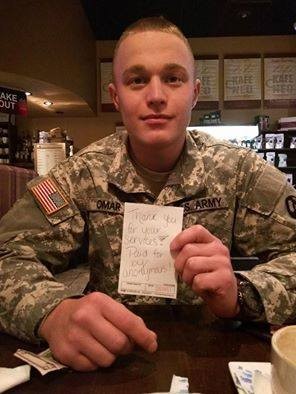 AKE
OUT
KAFE
NEO
KAFE
NEO
OMAR
U.S. ARMY
Thank you
for your
services!
Paid for
by
anonymous!